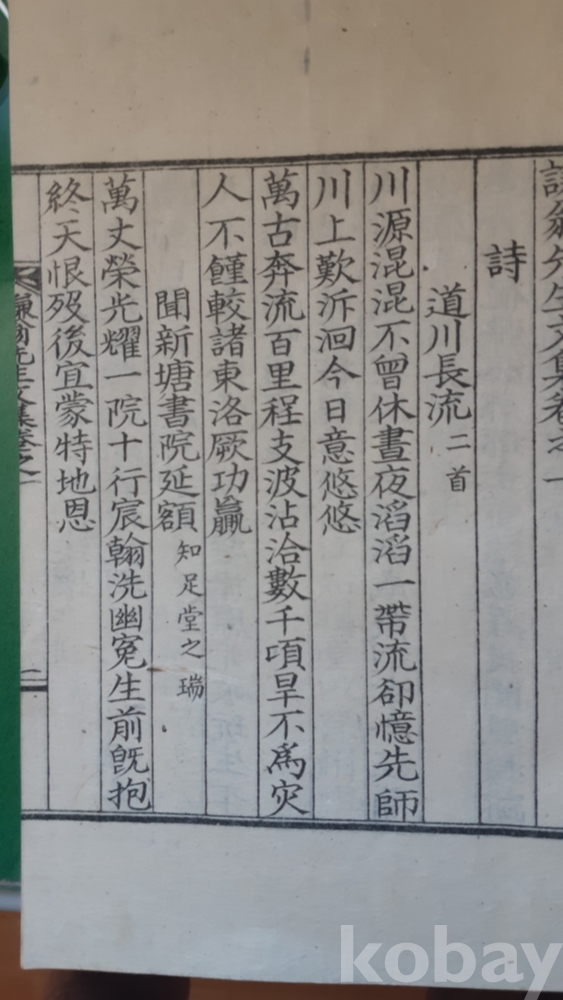 謙翁先生文集卷之一
詩
道川長流 二首
川源混混不曾休晝夜滔滔一帶流卻憶先師
川上歎泝洄今日意悠悠
萬古奔流百里程支波沾洽數千頃旱不爲灾
人不饉較諸東洛厥功贏
聞新塘書院延額 知足堂之瑞
萬丈榮光耀一院十行宸翰洗幽寃生前旣抱
終天恨歿後宜蒙特地恩
謙翁先生文集卷之一
一
kobay